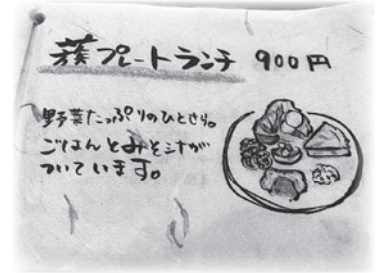 プレートランチ 900円
野菜たっぷりのひとさら。
ごはんとみそ汁が
ついています。